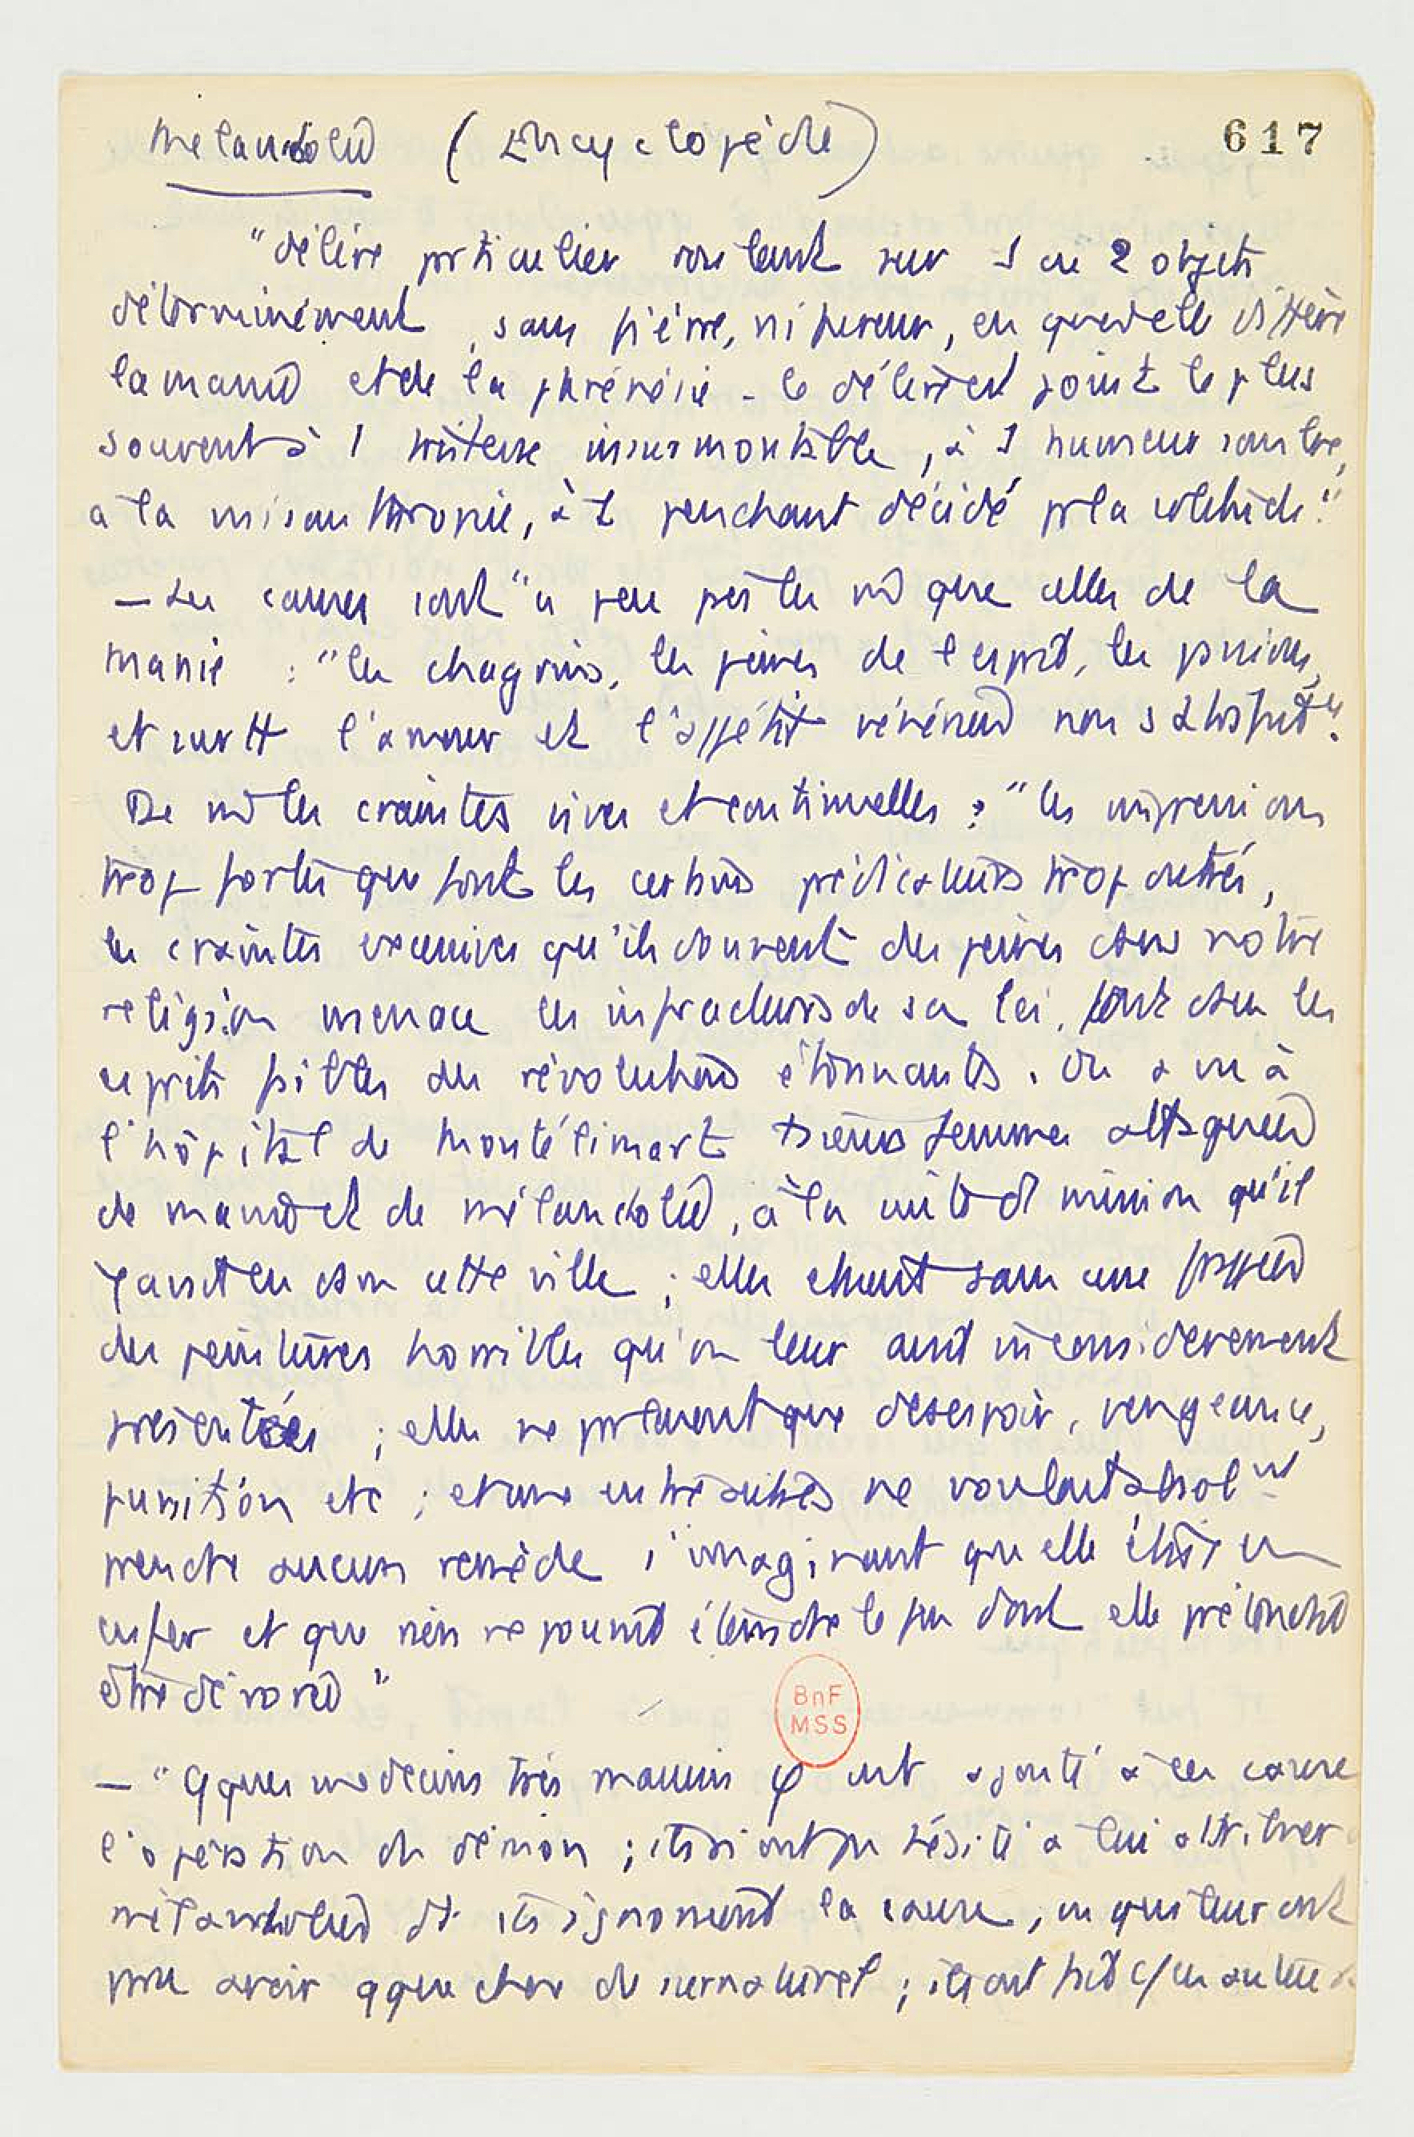 Mélancolie (Encyclopédie)
617
"délire particulier roulant sur 1 ou 2 objets
déterminément, sans fièvre, ni fureur, en quoi elle diffère
la manie et de la phrénésie - le délire est joint le plus
souvent à 1 tristesse insurmontable, à 1 humeur sombre,
à la misanthropie, à 1 penchant décidé pr la solitude."
— Les causes sont "à peu près les m̂ que celles de la
manie : "les chagrins, les peines de l'esprit, les passions,
et surtt l'amour et l'appétit vénérien non satisfait".
De m̂ les craintes vives et continuelles : "les impressions
trop fortes que font les certains prédicateurs trop outrés,
les craintes excessives qu'ils donnent des peines dont notre
religion menace les infracteurs de sa loi, font dans les
esprits faibles des révolutions étonnants. On a vu à
l'hôpital de Montélimart femmes attaquées
de manie et de mélancolie, à la suite d mission qu'il
y avait eu dans cette ville ; elles étaient sans cesse frappées
des peintures horribles qu'on leur avait inconsiderement
présentées ; elles ne parlaient que desespoir, vengeance,
punition etc ; et une entre autres ne voulait absolnt
prendre aucun remède s'imaginant qu elle était en
enfer et que rien ne pourrait éteindre le feu dont elle prétendait
être dévorée"
BnF
MSS
— "Qques medecins très mauvais φ ont ajouté à ces causes
l'opération du démon ; ils n ont pas hésité à lui attribuer
mélancolies dt ils ignoraient la cause, ou qui leur ont
paru avoir qque chose de surnaturel ; ils ont fait c/